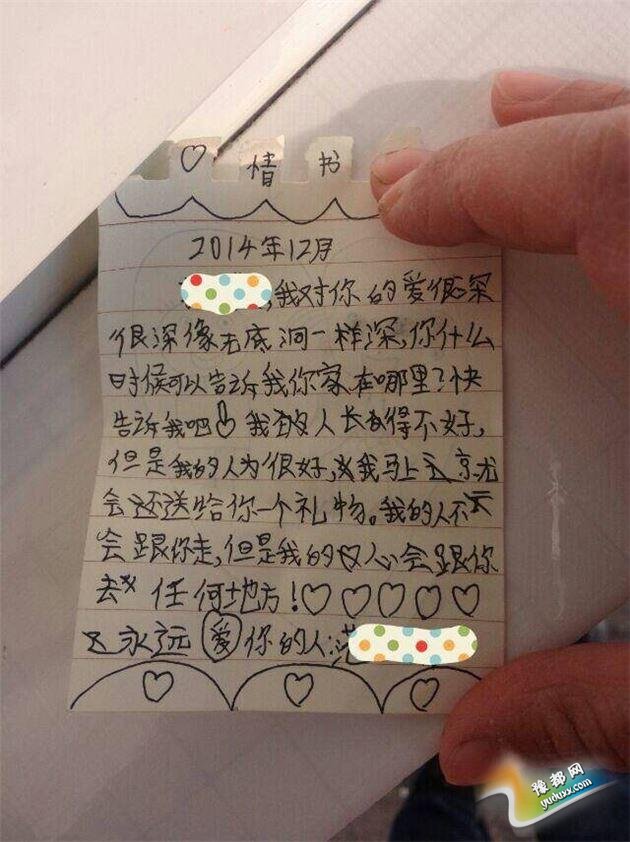 ♡ 情书
2014年12月
,我对你的爱很深
很深像无底洞一样深,你什么
时候可以告诉我你家在哪里?快
告诉我吧 我 人长 得不好,
但是我的人为很好, 我马上 就
会 送给你一个礼物。我的人不
会跟你走,但是我的 心会跟你
去 任何地方!♡♡♡♡♡
永远爱你的人:范
♡ ♡ ♡
豫都网
yuduxx.com